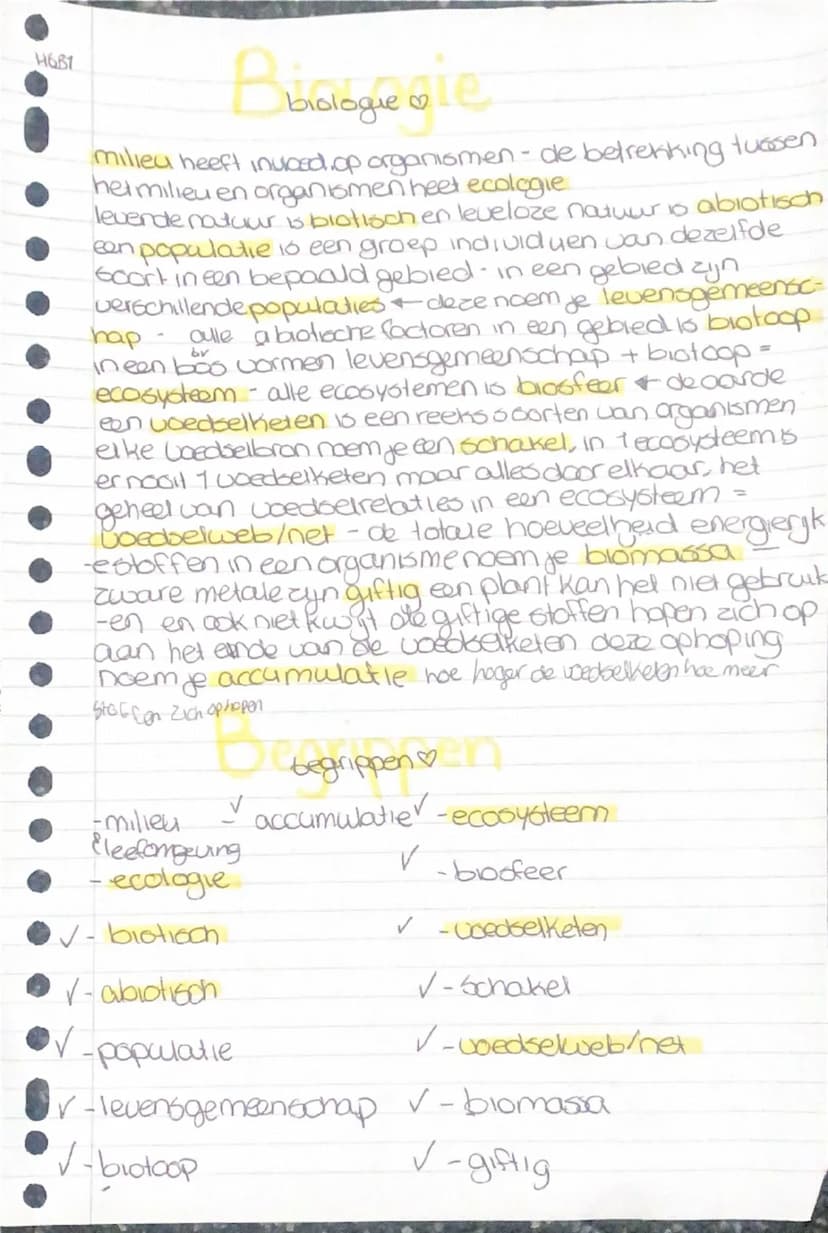 H6B1
Biologie
biologie ♡
milieu heeft invloed op organismen - de betrekking tussen
het milieu en organismen heet ecologie
levende natuur is biotisch en leveloze natuur is abiotisch
een populatie is een groep individuen van dezelfde
soort in een bepaald gebied - in een gebied zijn
verschillende populaties ← deze noem je levensgemeensc-
hap - alle abiotische factoren in een gebied is biotoop
in een bos vormen levensgemeenschap + biotoop =
ecosysteem - alle ecosystemen is biosfeer ← de aarde
een voedselketen is een reeks soorten van organismen
elke voedselbron noem je een schakel, in 1 ecosysteem is
er nooit 1 voedselketen maar alles door elkaar, het
geheel van voedselrelaties in een ecosysteem =
voedselweb/net - de totale hoeveelheid energierijk
-e stoffen in een organisme noem je biomassa —
zware metale zijn giftig een plant kan het niet gebruik
-en en ook niet kwijt die giftige stoffen hopen zich op
aan het einde van de voedselketen deze ophoping
noem je accumulatie hoe hoger de voedselketen hoe meer
stoffen zich ophopen
Begrippen
begrippen ♡
-milieu - ✓ accumulatie ✓ -ecosysteem
leefomgeving
- ecologie ✓ -biosfeer
✓ - biotisch ✓ -voedselketen
✓ - abiotisch ✓ - schakel
✓ - populatie ✓ -voedselweb/net
✓ - levensgemeenschap ✓ - biomassa
✓ - biotoop ✓ - giftig